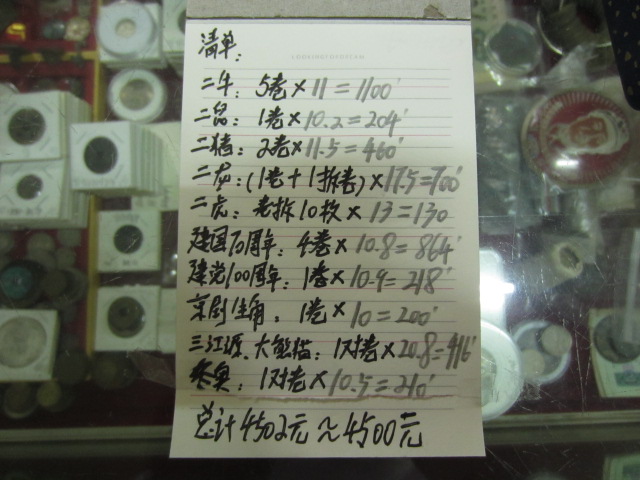 清单:
二牛: 5卷×11=1100
二鼠: 1卷×10.2=204
二猪: 2卷×11.5=460
二龙: (1卷+1拆卷)×17.5=700
二虎: 卷拆10枚×13=130
建国70周年: 4卷×10.8=864
建党100周年: 1卷×10.9=218
京剧生角: 1卷×10=200
三江源、大熊猫: 1对卷×20.8=416
冬奥: 1对卷×10.5=210
总计4502元≈4500元